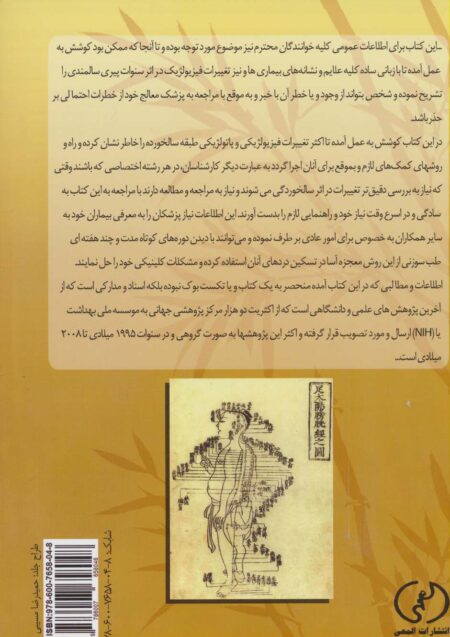 ـ این کتاب برای اطلاعات عمومی کلیه خوانندگان محترم نیز موضوع مورد توجه بوده و تا آنجا که ممکن بود کوشش به
عمل آمده تا با زبانی ساده کلیه علایم و نشانه‌های بیماری ها و نیز تغییرات فیزیولوژیک در اثر سنوات پیری سالمندی را
تشریح نموده و شخص بتواند از وجود و یا خطر آن با خبر و به موقع با مراجعه به پزشک معالج خود از خطرات احتمالی بر
حذر باشد.
در این کتاب کوشش به عمل آمده تا اکثر تغییرات فیزیولژیکی و پاتولژیکی طبقه سالخورده را خاطر نشان کرده و راه و
روشهای کمک‌های لازم و بموقع برای آنان اجرا گردد به عبارت دیگر کارشناسان، در هر رشته اختصاصی که باشند وقتی
که نیاز به بررسی دقیق‌تر تغییرات در اثر سالخوردگی می شوند و نیاز به مراجعه و مطالعه دارند با مراجعه به این کتاب به
سادگی و در اسرع وقت نیاز خود و راهنمایی لازم را بدست آورند. این اطلاعات نیاز پزشکان را به معرفی بیماران خود به
سایر همکاران به خصوص برای امور عادی بر طرف نموده و می‌توانند با دیدن دوره‌های کوتاه مدت و چند هفته ای
طب سوزنی از این روش معجزه آسا در تسکین دردهای آنان استفاده کرده و مشکلات کلینیکی خود را حل نمایند.
اطلاعات و مطالبی که در این کتاب آمده منحصر به یک کتاب و یا تکست بوک نبوده بلکه اسناد و مدارکی است که از
آخرین پژوهش های علمی و دانشگاهی است که از اکثریت دو هزار مرکز پژوهشی جهانی به موسسه ملی بهداشت
یا (NIH) ارسال و مورد تصویب قرار گرفته و اکثر این پژوهشها به صورت گروهی و در سنوات ۱۹۹۵ میلادی تا ۲۰۰۸
میلادی است...
足太陽膀胱經之圖
شابک: ۸-۰۴-۷۶۵۸-۶۰۰-۹۷۸
ISBN: 978-600-7658-04-8
طراح جلد: حمیدرضا مسیبی
انتشارات المعی